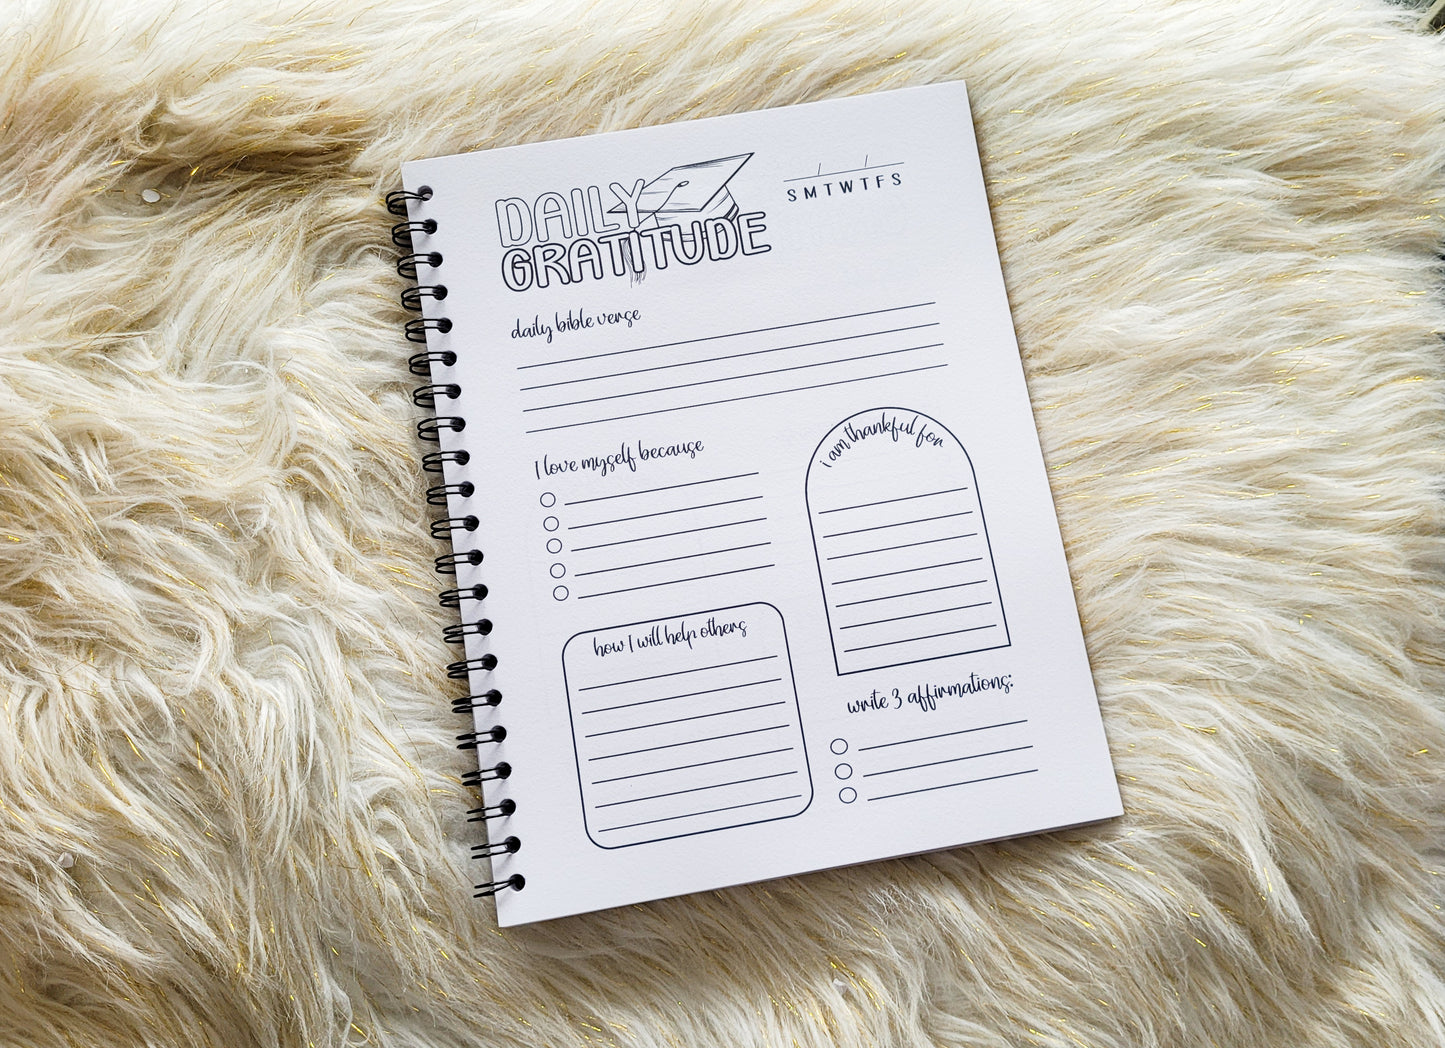 DAILY
GRATITUDE
S M T W T F S
daily bible verse
I love myself because
i am thankful for
how I will help others
write 3 affirmations: